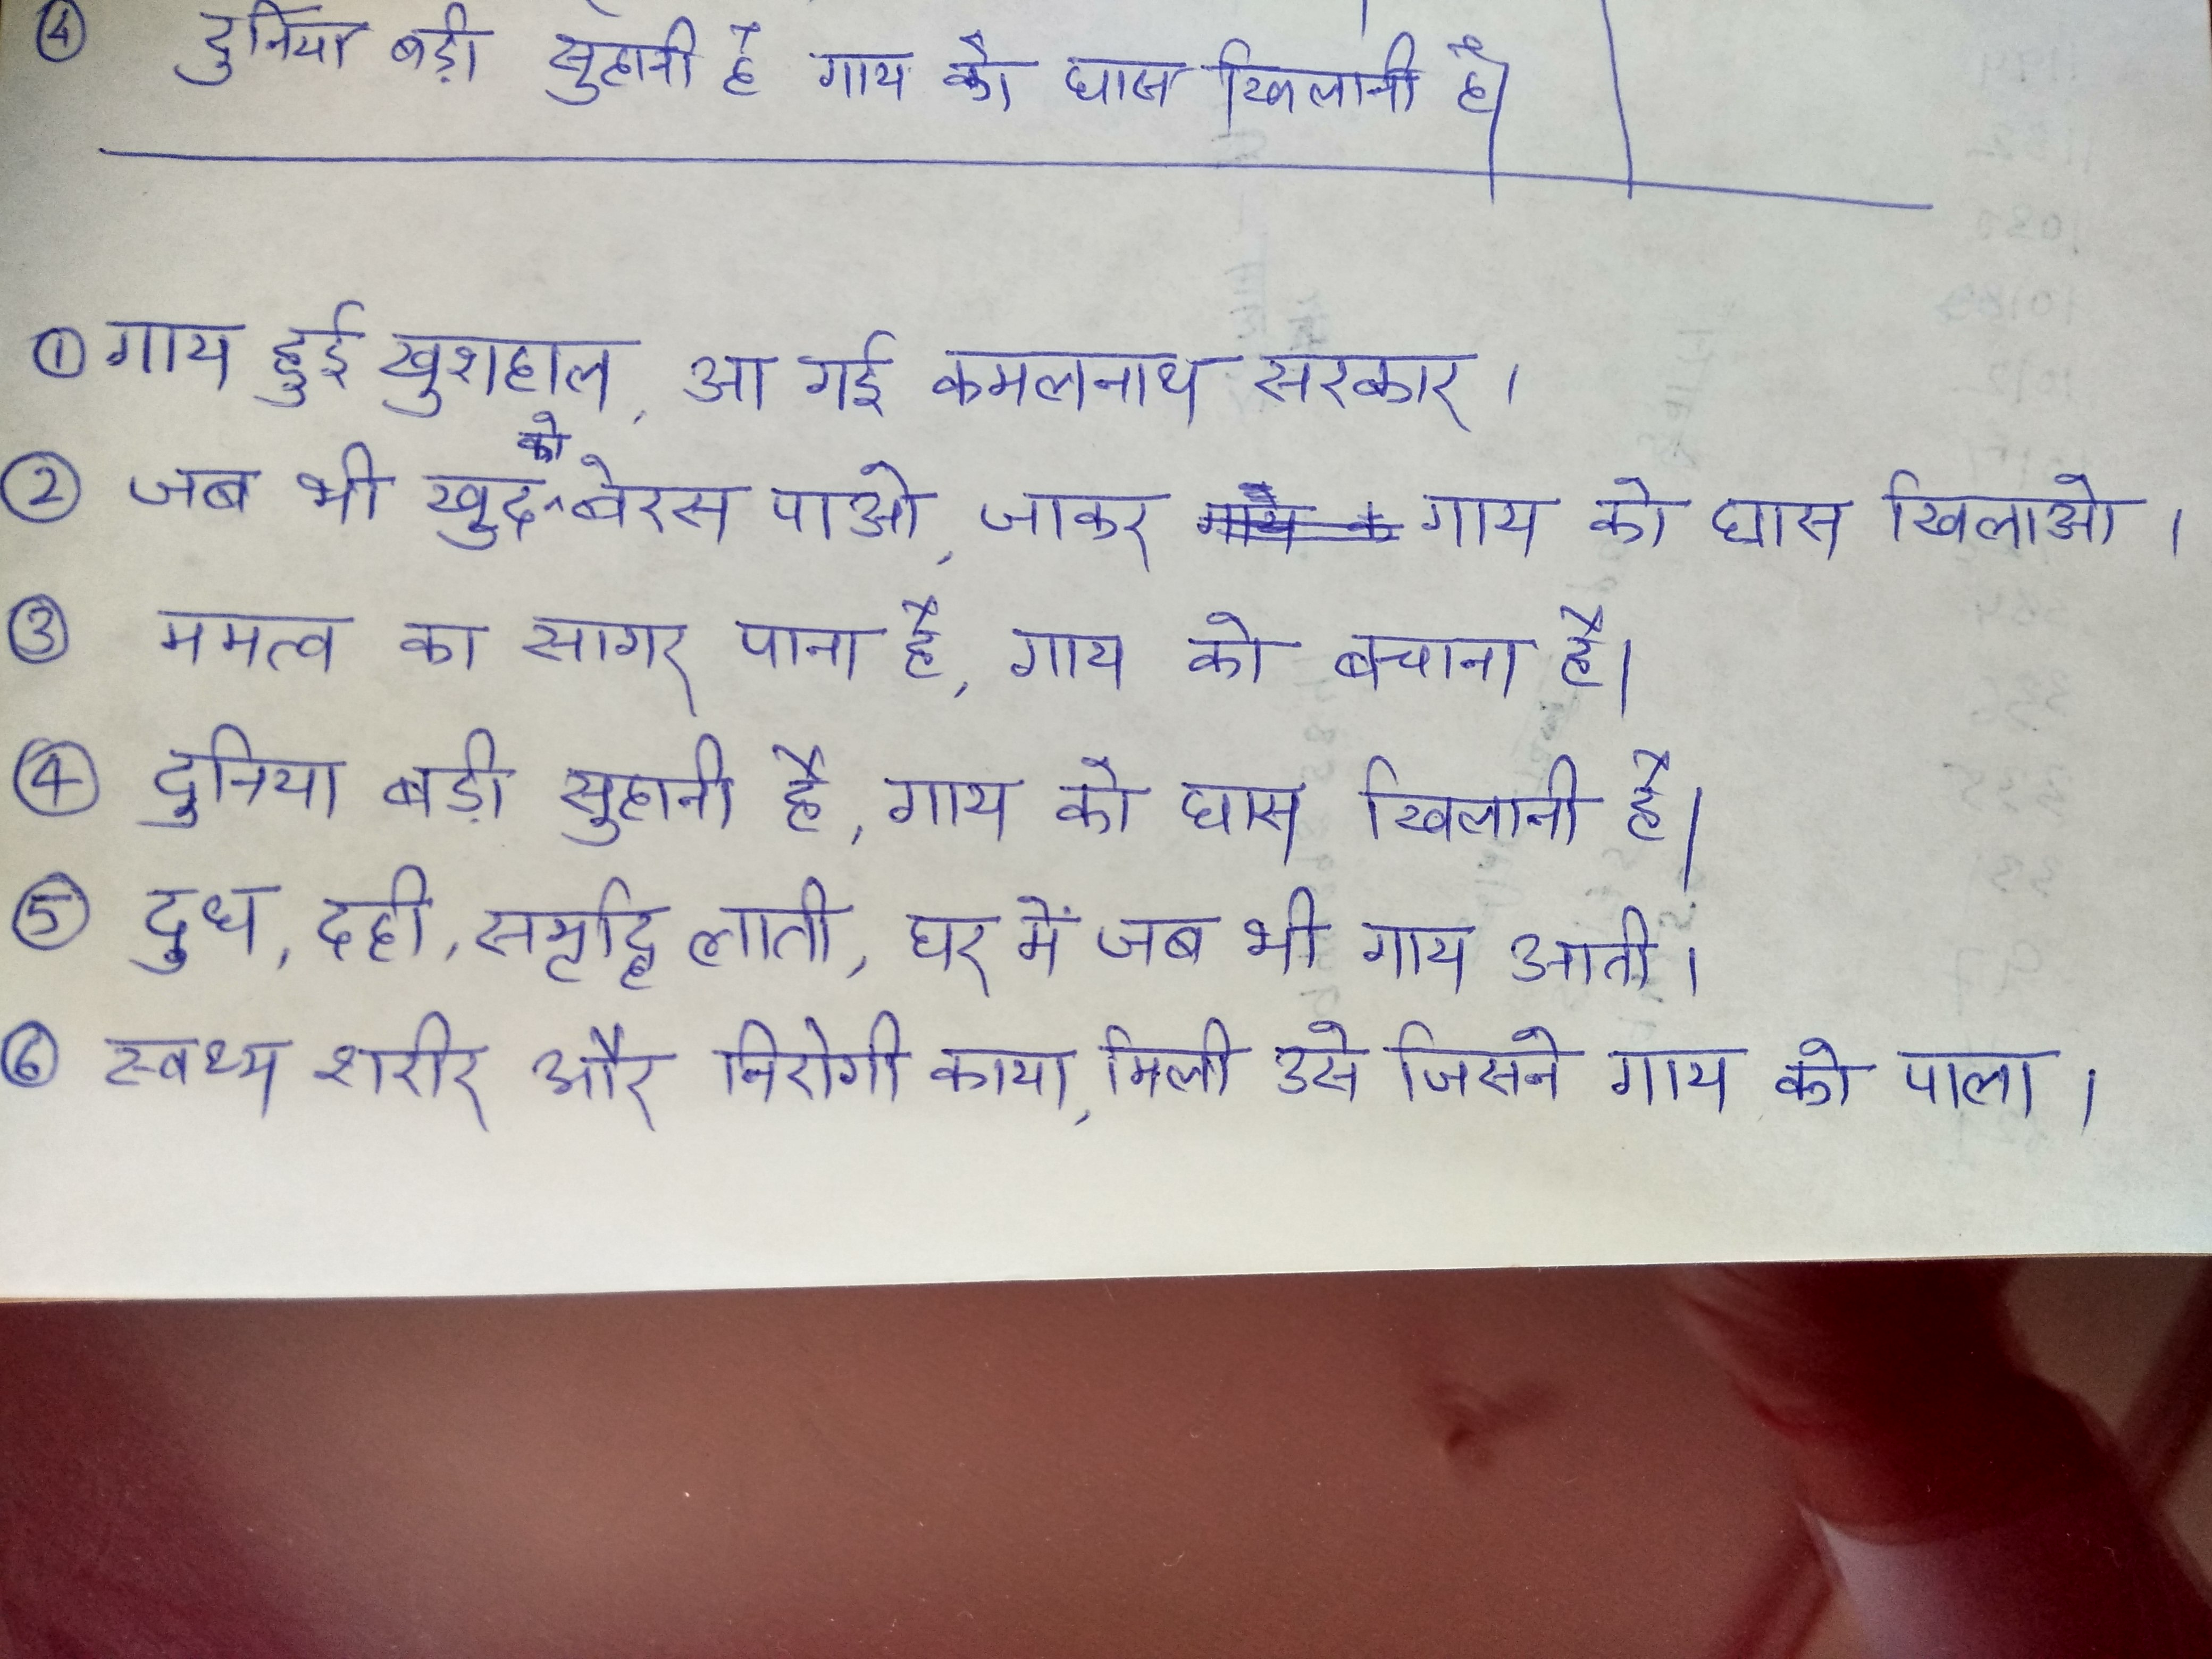 ④ दुनिया बड़ी सुहानी है गाय को घास खिलानी है।
① गाय हुई खुशहाल, आ गई कमलनाथ सरकार।
② जब भी खुद को बेरस पाओ, जाकर गाय को घास खिलाओ।
③ ममत्व का सागर पाना है, गाय को बचाना है।
④ दुनिया बड़ी सुहानी है, गाय को घास खिलानी है।
⑤ दुध, दही, समृद्धि लाती, घर में जब भी गाय आती।
⑥ स्वथ्य शरीर और निरोगी काया, मिली उसे जिसने गाय को पाला।